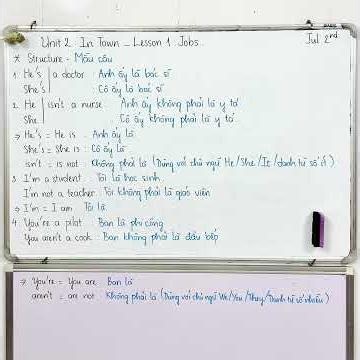 Unit 2 In Town - Lesson 1 Jobs. Jul 2nd
* Structure - Mẫu câu
1. He's a doctor : Anh ấy là bác sĩ
She's : Cô ấy là bác sĩ
2. He isn't a nurse : Anh ấy không phải là y tá
She : Cô ấy không phải là y tá
→ He's = He is : Anh ấy là
She's = She is : Cô ấy là
isn't = is not : Không phải là (Dùng với chủ ngữ He/She/It/danh từ số ít)
3. I'm a student : Tôi là học sinh
I'm not a teacher : Tôi không phải là giáo viên
→ I'm = I am Tôi là
4. You're a pilot : Bạn là phi công
You aren't a cook : Bạn không phải là đầu bếp
→ You're = You are Bạn là
aren't = are not : Không phải là (Dùng với chủ ngữ We/You/They/Danh từ số nhiều)